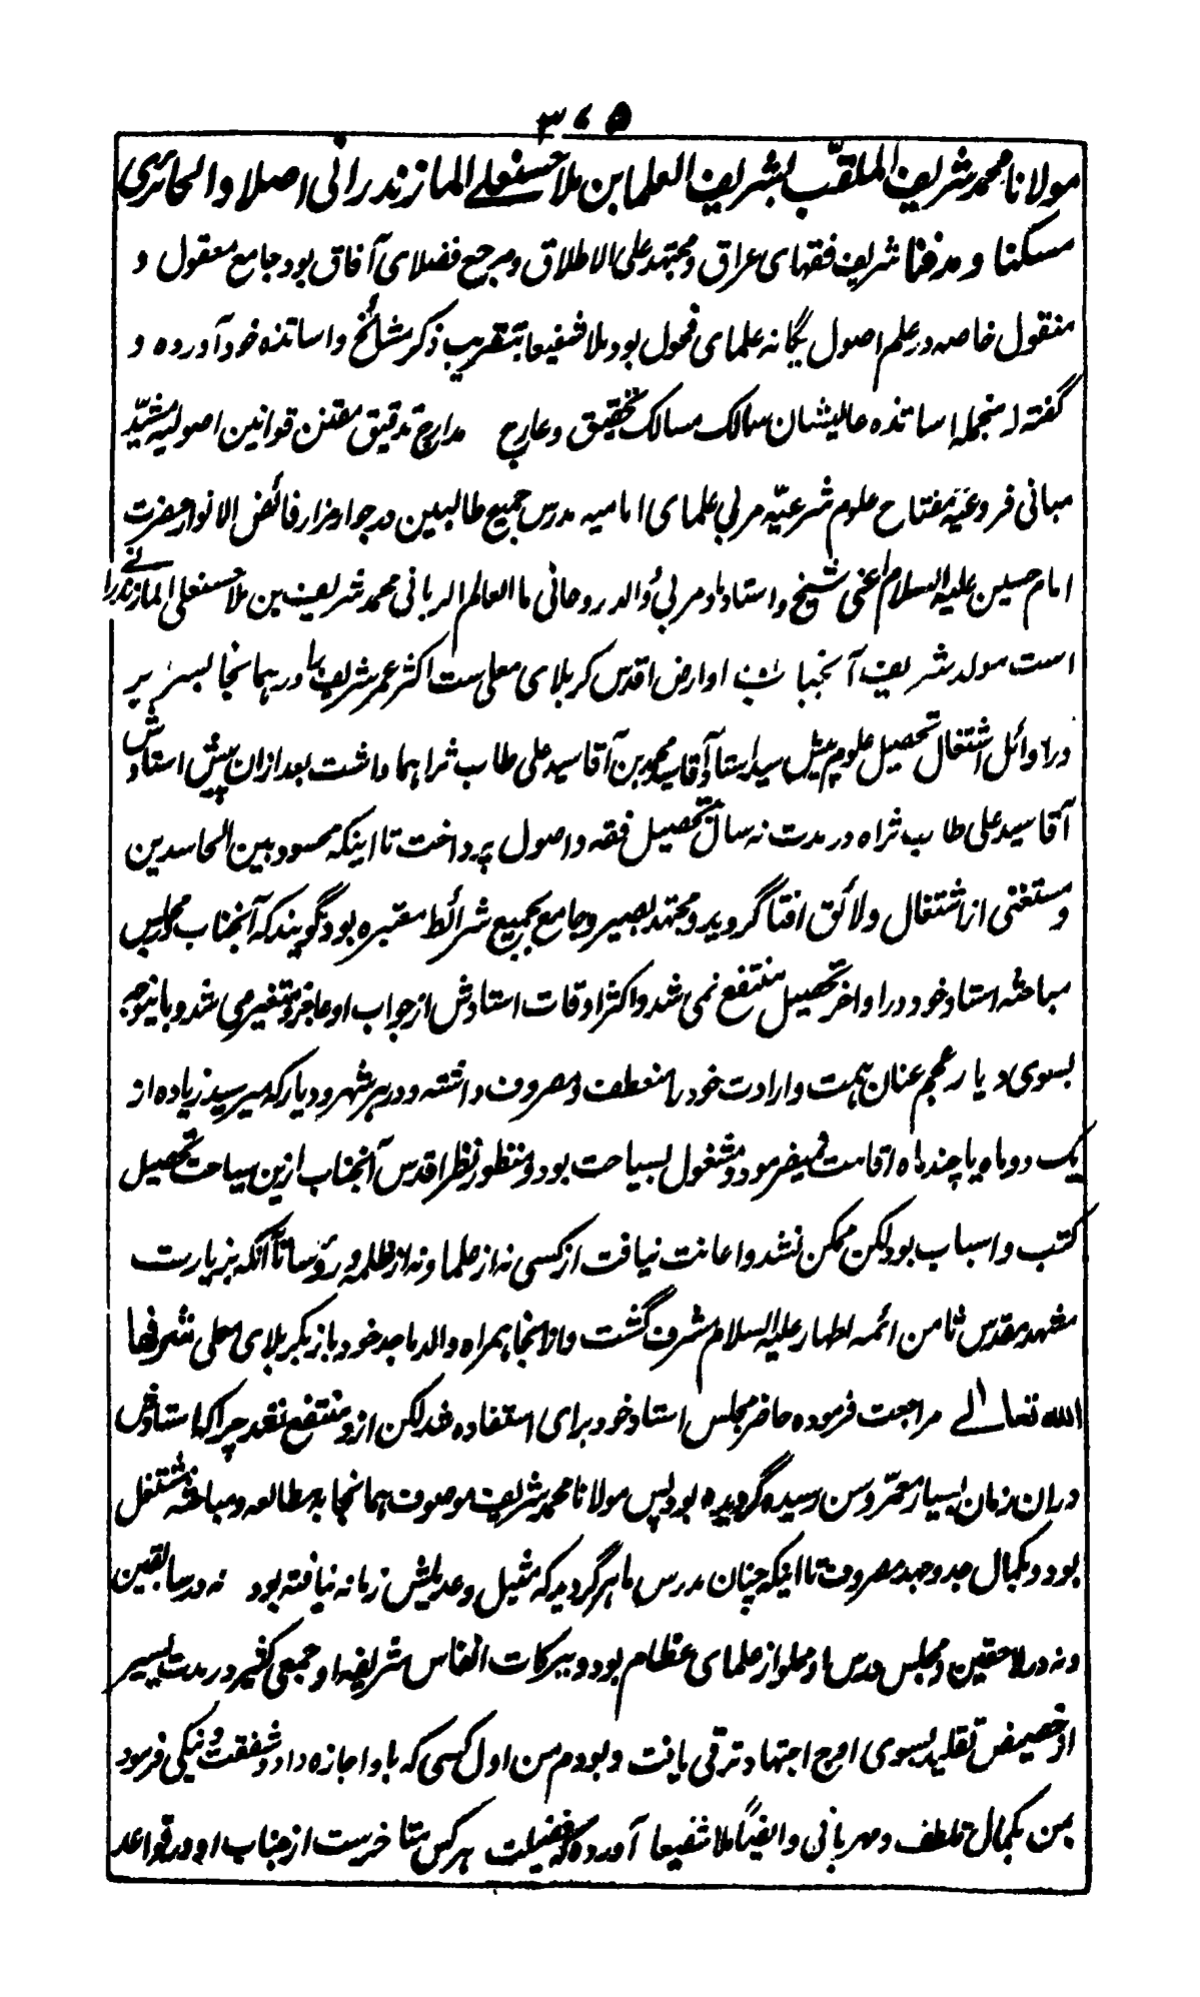 ۳۶۵
مولانا محمد شریف الملقّب بشریف العلما بن ملا حسنعلے المازندرانی اصلا والحائری
مسکنا و مدفنا شریف فقهای عراق و مجتهد علی الاطلاق و مرجع فضلای آفاق بود جامع معقول و
منقول خاصه در علم اصول یگانه علمای فحول بود ملا شفیعا بتقریب ذکر مشائخ و اساتذه خود آورده و
گفته از منجمله اساتذه عالیشان سالک مسالک تحقیق و عارج مدارج تدقیق مقنن قوانین اصولیه مشیّد
مبانی فروعیّه مفتاح علوم شرعیّه مربی علمای امامیه مدرس جمیع طالبین در جوار مزار فائض الانوار حضرت
امام حسین علیه السلام اعنی شیخ و استاد و مربی و والد روحانی ما العالم الربانی محمد شریف بن ملا حسنعلی المازندرانے
است مولد شریف آنجناب او ارض اقدس کربلای معلی ست اکثر عمر شریف را در همانجا بسر بر
در اوائل اشتغال تحصیل علوم پیش سید استاد آقا سید محمد بن آقا سید علی طاب ثراهما داشت بعد ازان پیش استادش
آقا سید علی طاب ثراه در مدت نه سال تحصیل فقه و اصول پرداخت تا اینکه محسود بین الحاسدین
و مستغنی از اشتغال و لائق افتا گردید و مجتهد بصیر و جامع جمیع شرائط معتبره بود گویند که آنجناب مجلس
مباحثه استاد خود در اواخر تحصیل منتفع نمی شد و اکثر اوقات استادش از جواب او عاجز و متغیر می شد و باینوجه
بسوی دیار عجم عنان همت و ارادت خود را منعطف و مصروف داشته و در هر شهر و دیار که میرسید زیاده از
یک دو ماه یا چند ماه اقامت نمیفرمود و مشغول بسیاحت بود و منظور نظر اقدس آنجناب ازین سیاحت تحصیل
کتب و اسباب بود لکن ممکن نشد و اعانت نیافت از کسی نه از علما و نه از ظلمه و رؤسا تا آنکه بزیارت
مشهد مقدس ثامن ائمه اطهار علیه السلام مشرف گشت و از انجا همراه والد ماجد خود باز بکربلای معلی شرفها
الله تعالے مراجعت فرموده حاضر مجلس استاد خود برای استفاده شد لکن ازو منتفع نشد چرا که استادش
دران زمان بسیار معمّر و سن رسیده گردیده بود پس مولانا محمد شریف موصوف همانجا به مطالعه و مباحثه مشتغل
بود و بکمال جد و جهد مصروف تا اینکه چنان مدرس ماهر گردید که مثیل و عدیلش زمانه نیافته بود نه در سابقین
و نه در لاحقین و مجلس درس او مملو از علمای عظام بود و ببرکات انفاس شریفه او جمعی کثیر در مدت یسیر
از حضیض تقلید بسوی اوج اجتهاد ترقی یافت و بودم من اول کسی که باو اجازه داد و شفقت و نیکی فرمود
بمن بکمال تلطف و مهربانی و ایضًا ملا شفیعا آورده که فضیلت هر کس متاخرست از جناب او در قواعد